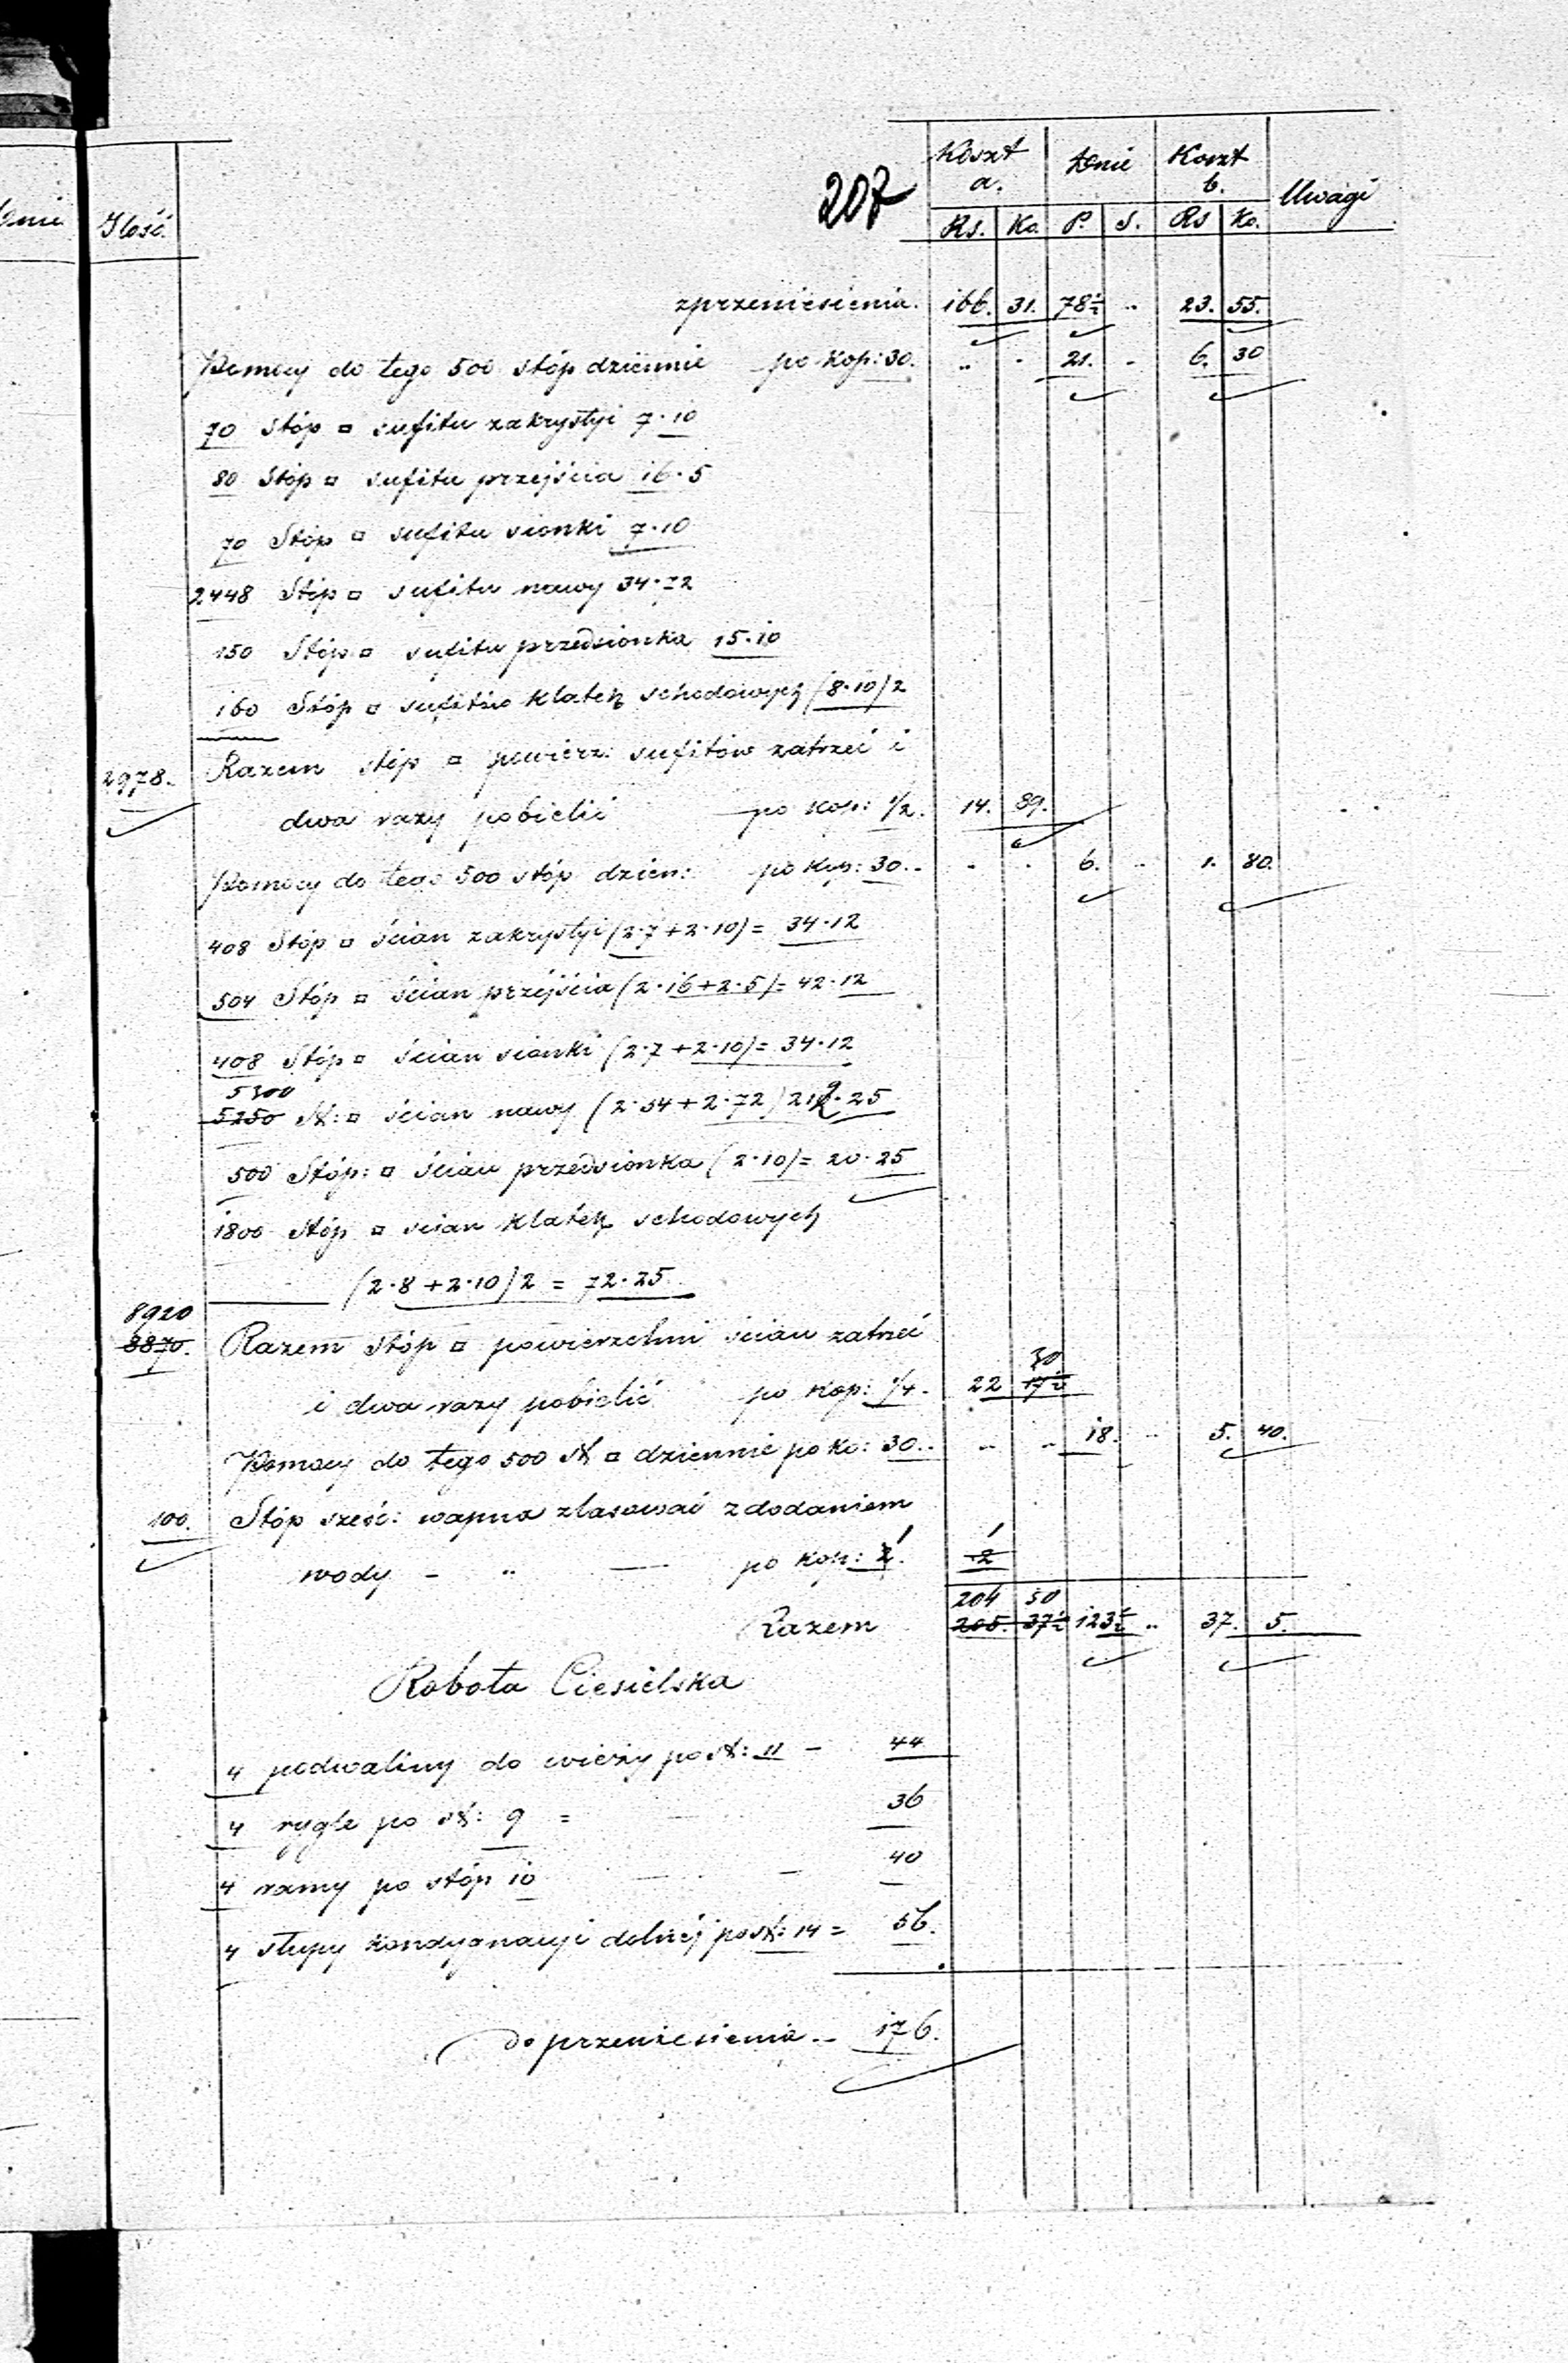 207
Ilość. Koszt a. Dnie Koszt b. Uwagi
Rs. Ko. P. S. Rs Ko.
zprzeniesienia. 166. 31. 78½ .. 23. 55.
Pomocy do tego 500 stóp dziennie po kop: 30. .. - 21. - 6. 30
70 stóp □ sufitu zakrystyi 7·10
80 Stóp □ sufitu przejścia 16·5
70 Stóp □ sufitu sionki 7·10
2448 Stóp □ sufitu nawy 34·72
150 Stóp □ sufitu przedsionka 15·10
160 Stóp □ sufitów klatek schodowych (8·10)2
2978. Razem stóp □ powierz: sufitów zatrzeć i
dwa razy pobielić po kop: ½. 14. 89.
Pomocy do tego 500 stóp dzien: po kop: 30.. - . 6. .. 1. 80.
408 Stóp □ ścian zakrystyi (2·7+2·10)= 34·12
504 Stóp □ ścian przejścia (2·16+2·5)= 42·12
408 Stóp □ ścian sionki (2·7+2·10)= 34·12
5300
5250 St: □ ścian nawy (2·34+2·72) 212·25
500 Stóp: □ ścian przedsionka (2·10)= 20·25
1800 Stóp □ ścian klatek schodowych
(2·8+2·10)2 = 72·25
8920
8870. Razem stóp □ powierzchni ścian zatrzeć
30
i dwa razy pobielić po kop: ¼. 22 17½
Pomocy do tego 500 st □ dziennie po ko: 30.. .. .. 18. .. 5. 40.
100. Stóp sześć: wapna zlasować z dodaniem
1
wody - .. — po kop: 2 1. 2
204 50
Razem 205. 37½ 123½ .. 37. 5.
Robota Ciesielska
4 podwaliny do wieży po st: 11 - 44
4 rygle po st: 9 = 36
4 ramy po stóp 10 - 40
4 słupy kondygnacyi dolnéj po st: 14 = 56.
do przeniesienia.. 176.